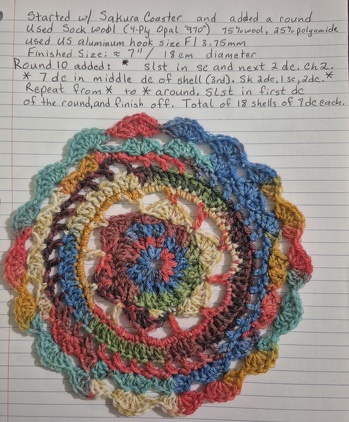 Started w/ Sakura Coaster and added a round
Used Sock Wool (4-Ply Opal "970") 75% wool, 25% polyamide
used US aluminum hook size F/3.75mm
Finished Size: ≈ 7"/18cm diameter
Round 10 added: * Slst in sc and next 2 dc. Ch 2.
* 7 dc in middle dc of shell (3rd). Sk 2dc, 1 sc, 2dc. *
Repeat from * to * around. SLst in first dc
of the round, and finish off. Total of 18 shells of 7dc each.